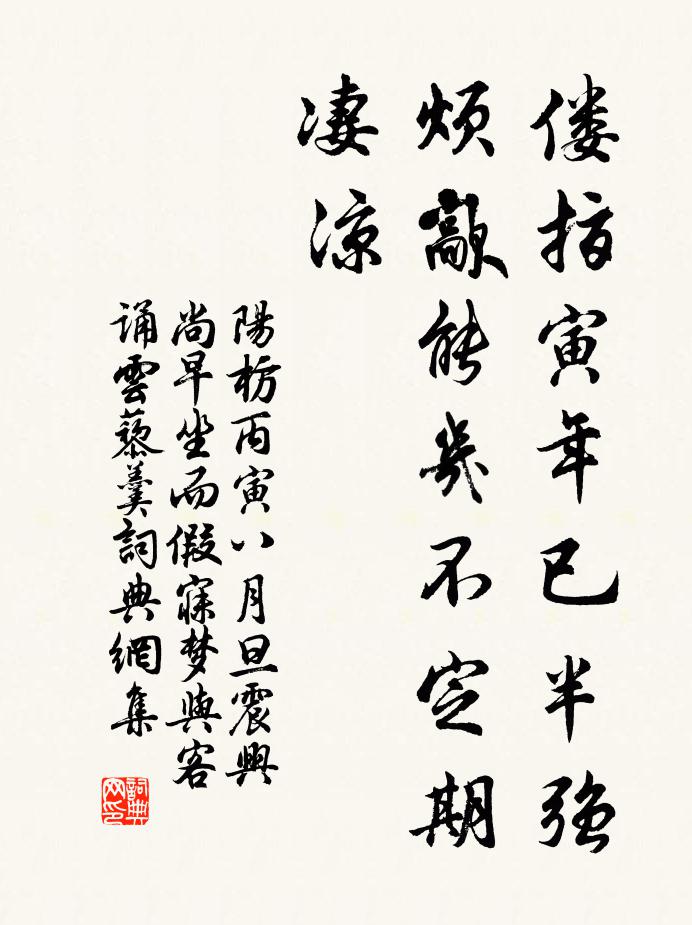 偻指寅年已半強
煩歊能幾不定期
淒涼
陽枋丙寅八月旦震興
尚早坐而假寐梦與客
誦雲藜羹詞典網集
詞典
网印